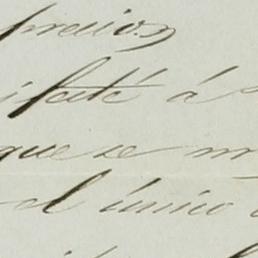 precio.
ifesté á
que se m
el único